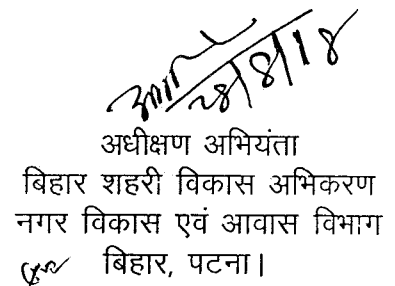 28/8/18
अधीक्षण अभियंता
बिहार शहरी विकास अभिकरण
नगर विकास एवं आवास विभाग
बिहार, पटना।